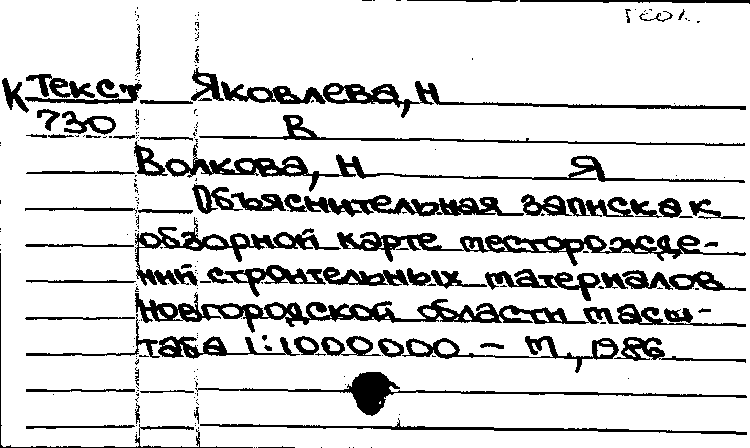 геол.
К Текст Яковлева, Н
730 В
Волкова, Н Я
Объяснительная записка к
обзорной карте месторожде-
ний строительных материалов
Новгородской области масш-
таба 1:1000000. - М., 1986.